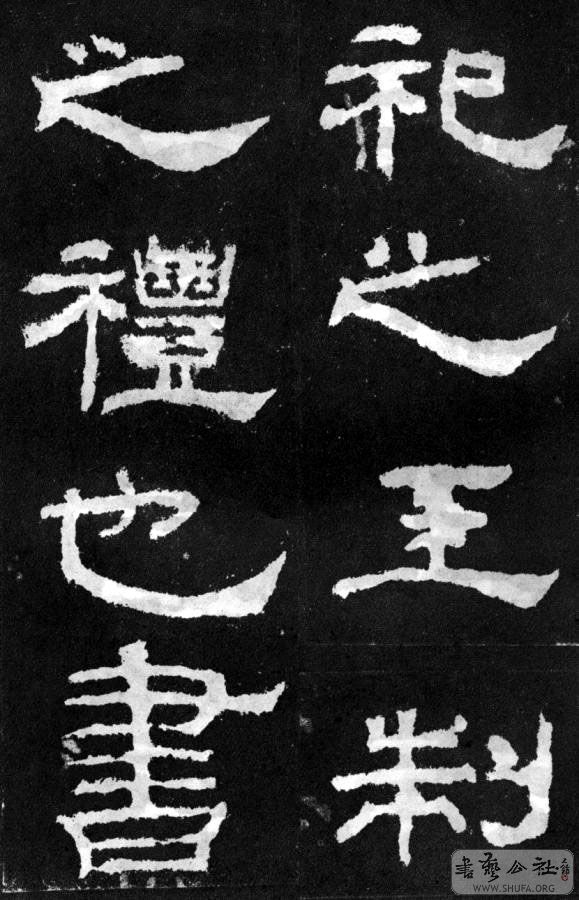 祀之王制
之禮也書
書藝公社
WWW.SHUFA.ORG